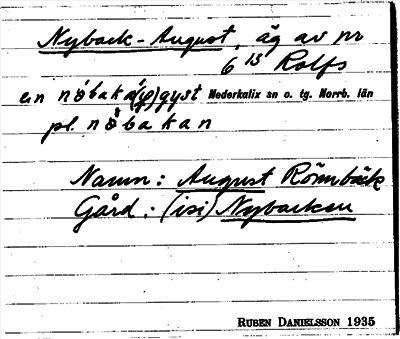 Nyback-August, äg av nr
6 15 Rolfs
en nóbaká(y)gyst Nederkalix sn o. tg. Norrb. län
pl. nóbakan
Namn: August Rönnbäck
Gård: (isi) Nybacken
RUBEN DANIELSSON 1935